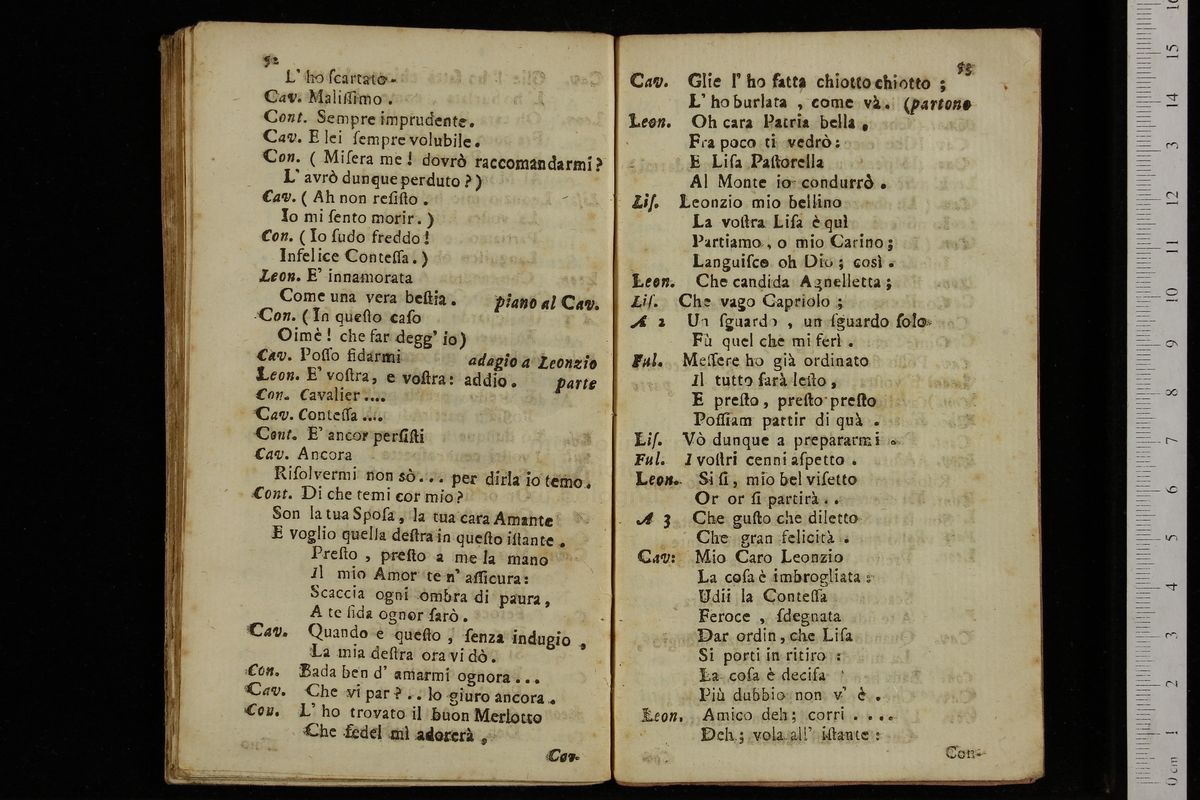 52
L' ho ſcartato.
Cav. Maliſſimo .
Cont. Sempre imprudente.
Cav. E lei ſempre volubile.
Con. ( Miſera me ! dovrò raccomandarmi?
L' avrò dunque perduto ? )
Cav. ( Ah non reſiſto .
Io mi ſento morir. )
Con. ( Io ſudo freddo !
Infelice Conteſſa. )
Leon. E' innamorata
Come una vera beſtia . piano al Cav.
Con. ( In queſto caſo
Oimè ! che far degg' io)
Cav. Poſſo fidarmi adagio a Leonzio
Leon. E' voſtra, e voſtra: addio. parte
Con. Cavalier....
Cav. Conteſſa....
Cont. E' ancor perſiſti
Cav. Ancora
Riſolvermi non sò... per dirla io temo.
Cont. Di che temi cor mio?
Son la tua Spoſa, la tua cara Amante
E voglio quella deſtra in queſto iſtante .
Preſto , preſto a me la mano
Il mio Amor te n' aſſicura:
Scaccia ogni ombra di paura,
A te fida ognor ſarò .
Cav. Quando e queſto , ſenza indugio ,
La mia deſtra ora vi dò.
Con. Bada ben d' amarmi ognora...
Cav. Che vi par ? .. lo giuro ancora.
Con. L' ho trovato il buon Merlotto
Che fedel mi adorerà ,
Cav-
53
Cav. Glie l' ho fatta chiotto chiotto ;
L' ho burlata , come và. (partono
Leon. Oh cara Patria bella ,
Fra poco ti vedrò:
E Liſa Paſtorella
Al Monte io condurrò .
Liſ. Leonzio mio bellino
La voſtra Liſa è quì
Partiamo, o mio Carino;
Languiſco oh Dio; così .
Leon. Che candida Agnelletta;
Liſ. Che vago Capriolo ;
A 2 Un ſguardo , un ſguardo ſolo
Fù quel che mi ferì .
Ful. Meſſere ho già ordinato
Il tutto ſarà leſto,
E preſto, preſto preſto
Poſſiam partir di quà .
Liſ. Vò dunque a prepararmi .
Ful. I voſtri cenni aſpetto .
Leon. Si ſi, mio bel viſetto
Or or ſi partirà . .
A 3 Che guſto che diletto
Che gran felicità .
Cav: Mio Caro Leonzio
La coſa è imbrogliata :
Udii la Conteſſa
Feroce , ſdegnata
Dar ordin, che Liſa
Si porti in ritiro :
La coſa è deciſa
Più dubbio non v' è .
Leon. Amico deh; corri . . . .
Deh; vola all' iſtante :
Con-